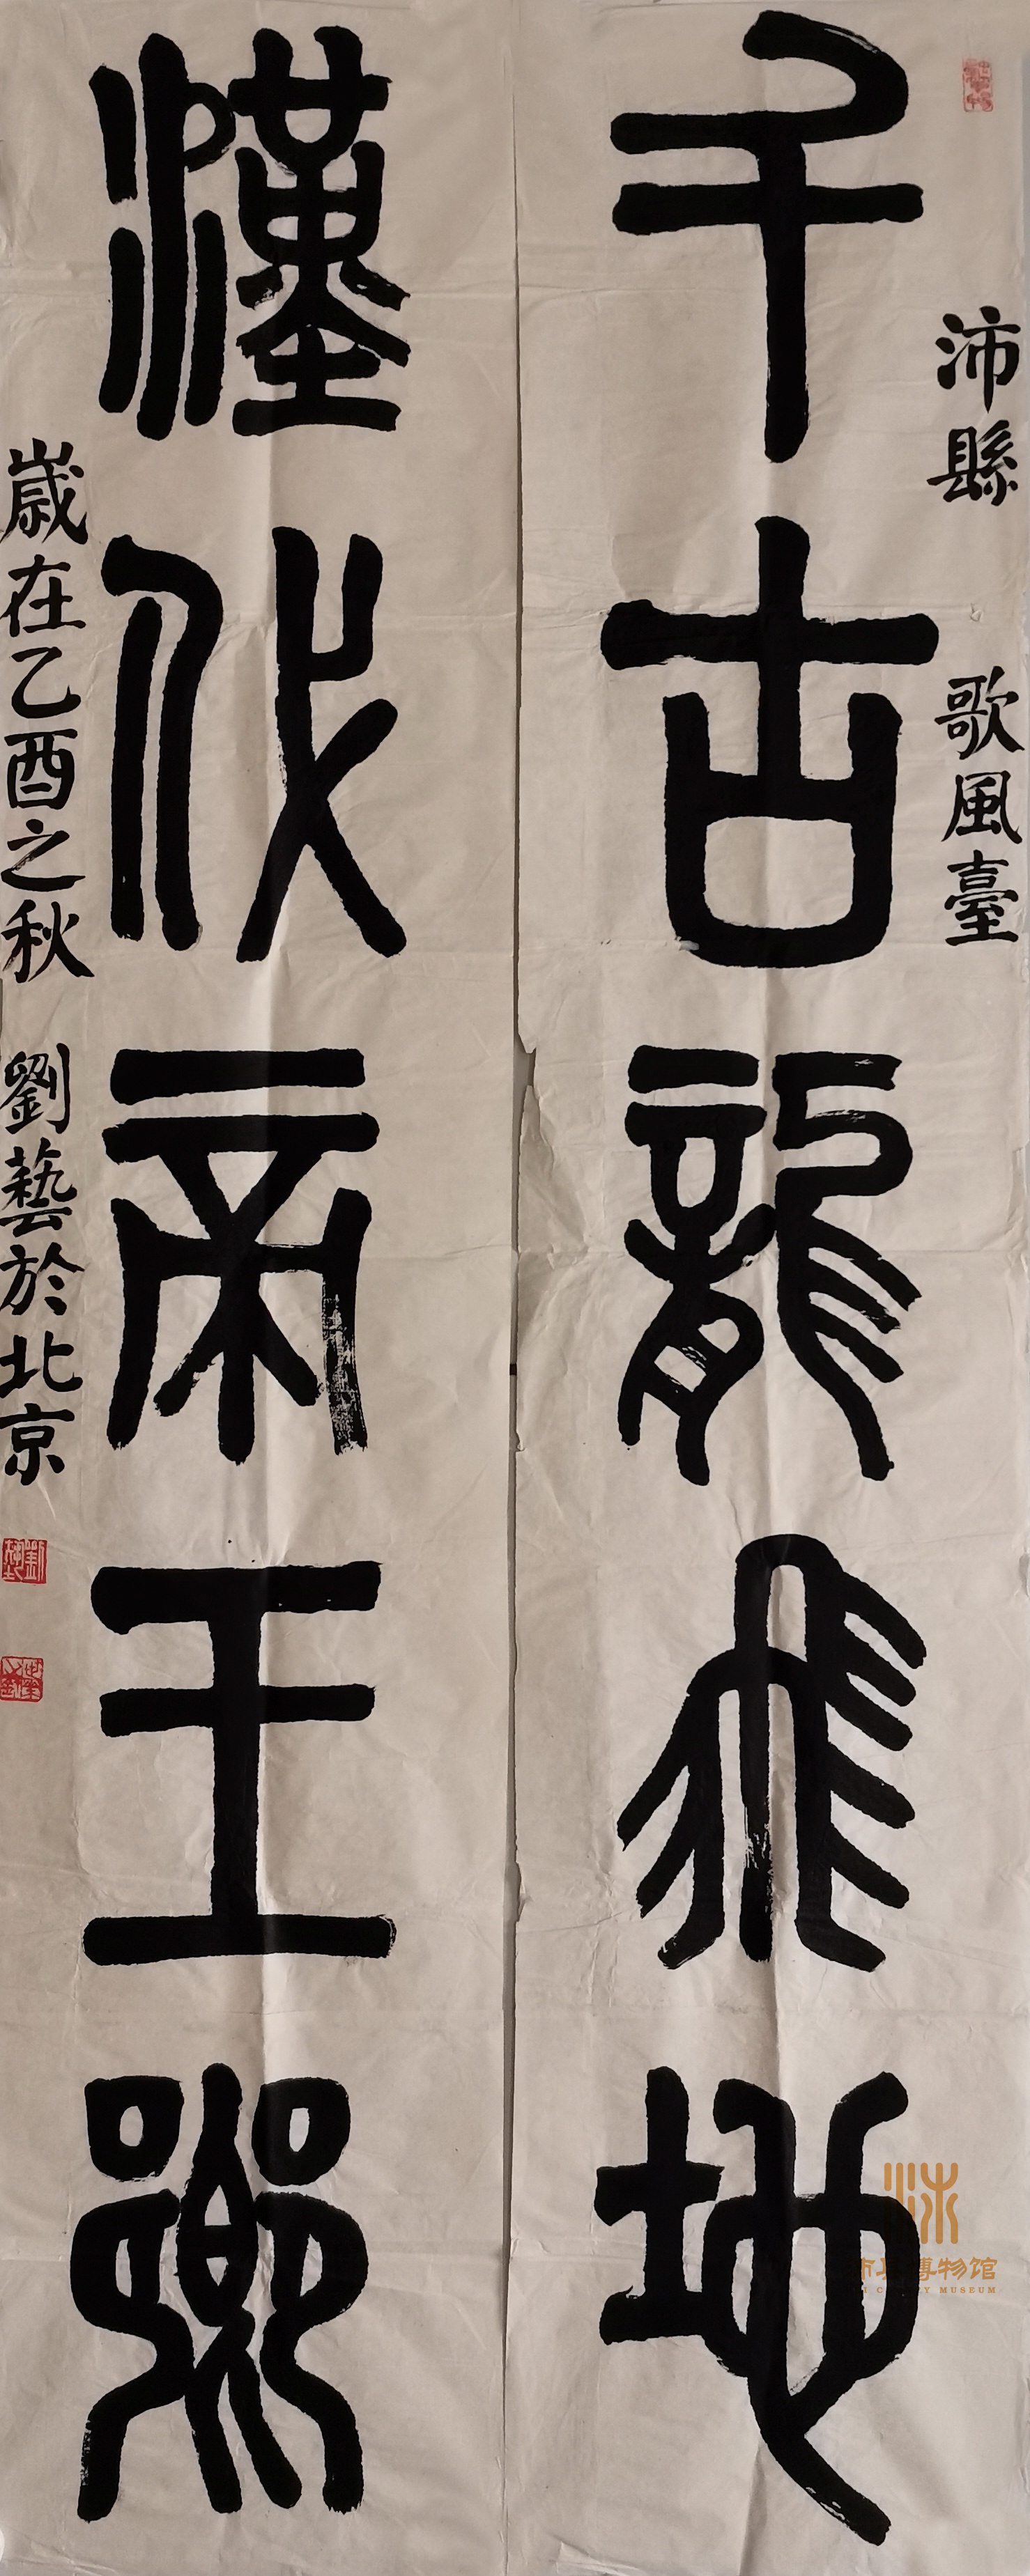 沛縣 歌風臺
千古龍飛地
漢代帝王鄉
歲在乙酉之秋 劉藝於北京
劉藝
博物馆
MUSEUM